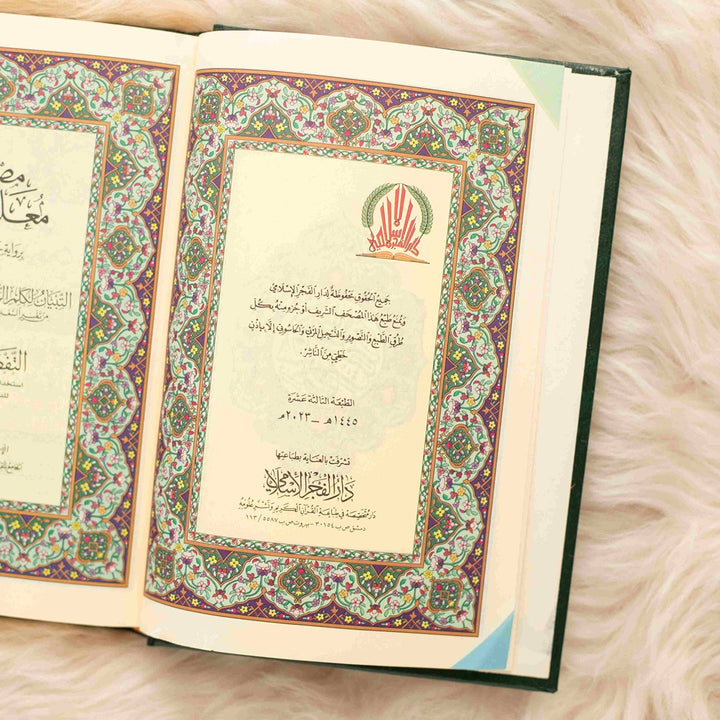 مص
معل
برواية
التبيان لكلم
التف
جميع الحقوق محفوظة لدار الفجر الإسلامي
ويمنع طبع هذا المصحف الشريف أو جزء منه بكل
طرق الطبع والتصوير والتسجيل المرئي والحاسوبي إلا بإذن
خطي من الناشر.
الطبعة الثالثة عشرة
١٤٤٥هـ - ٢٠٢٣م
تشرفت بالعناية بطباعتها
دار الفجر الإسلامي
دار متخصصة في طباعة القرآن الكريم ونشر علومه
دمشق ص ب ٣٠١٥٤ - بيروت ص ب ١١٣/٥٥٨٧